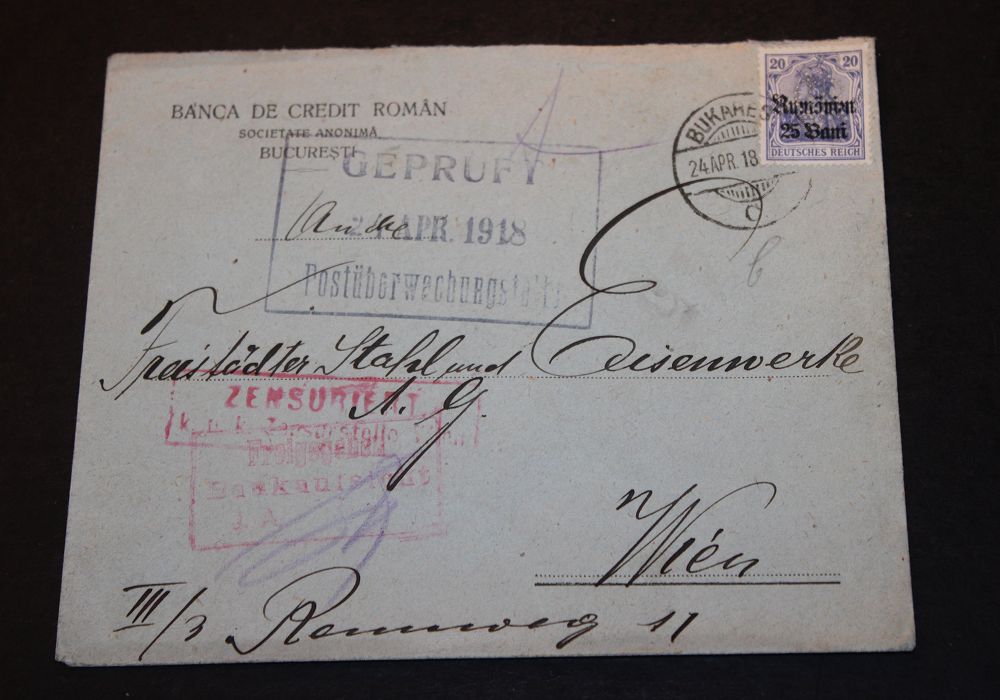 BANCA DE CREDIT ROMÂN
SOCIETATE ANONIMĂ
BUCUREȘTI
20 20
Rumänien
25 Bani
DEUTSCHES REICH
BUKAREST
24 APR. 18
C
GEPRÜFT
24 APR. 1918
Postüberwachungsstelle
An die
Freistädter Stahl und Eisenwerke
A. G.
ZENSURIERT
k. u. k. Zensurstelle Wien
Freigegeben
Bankaufsicht
J. A.
Wien
III/3 Rennweg 11